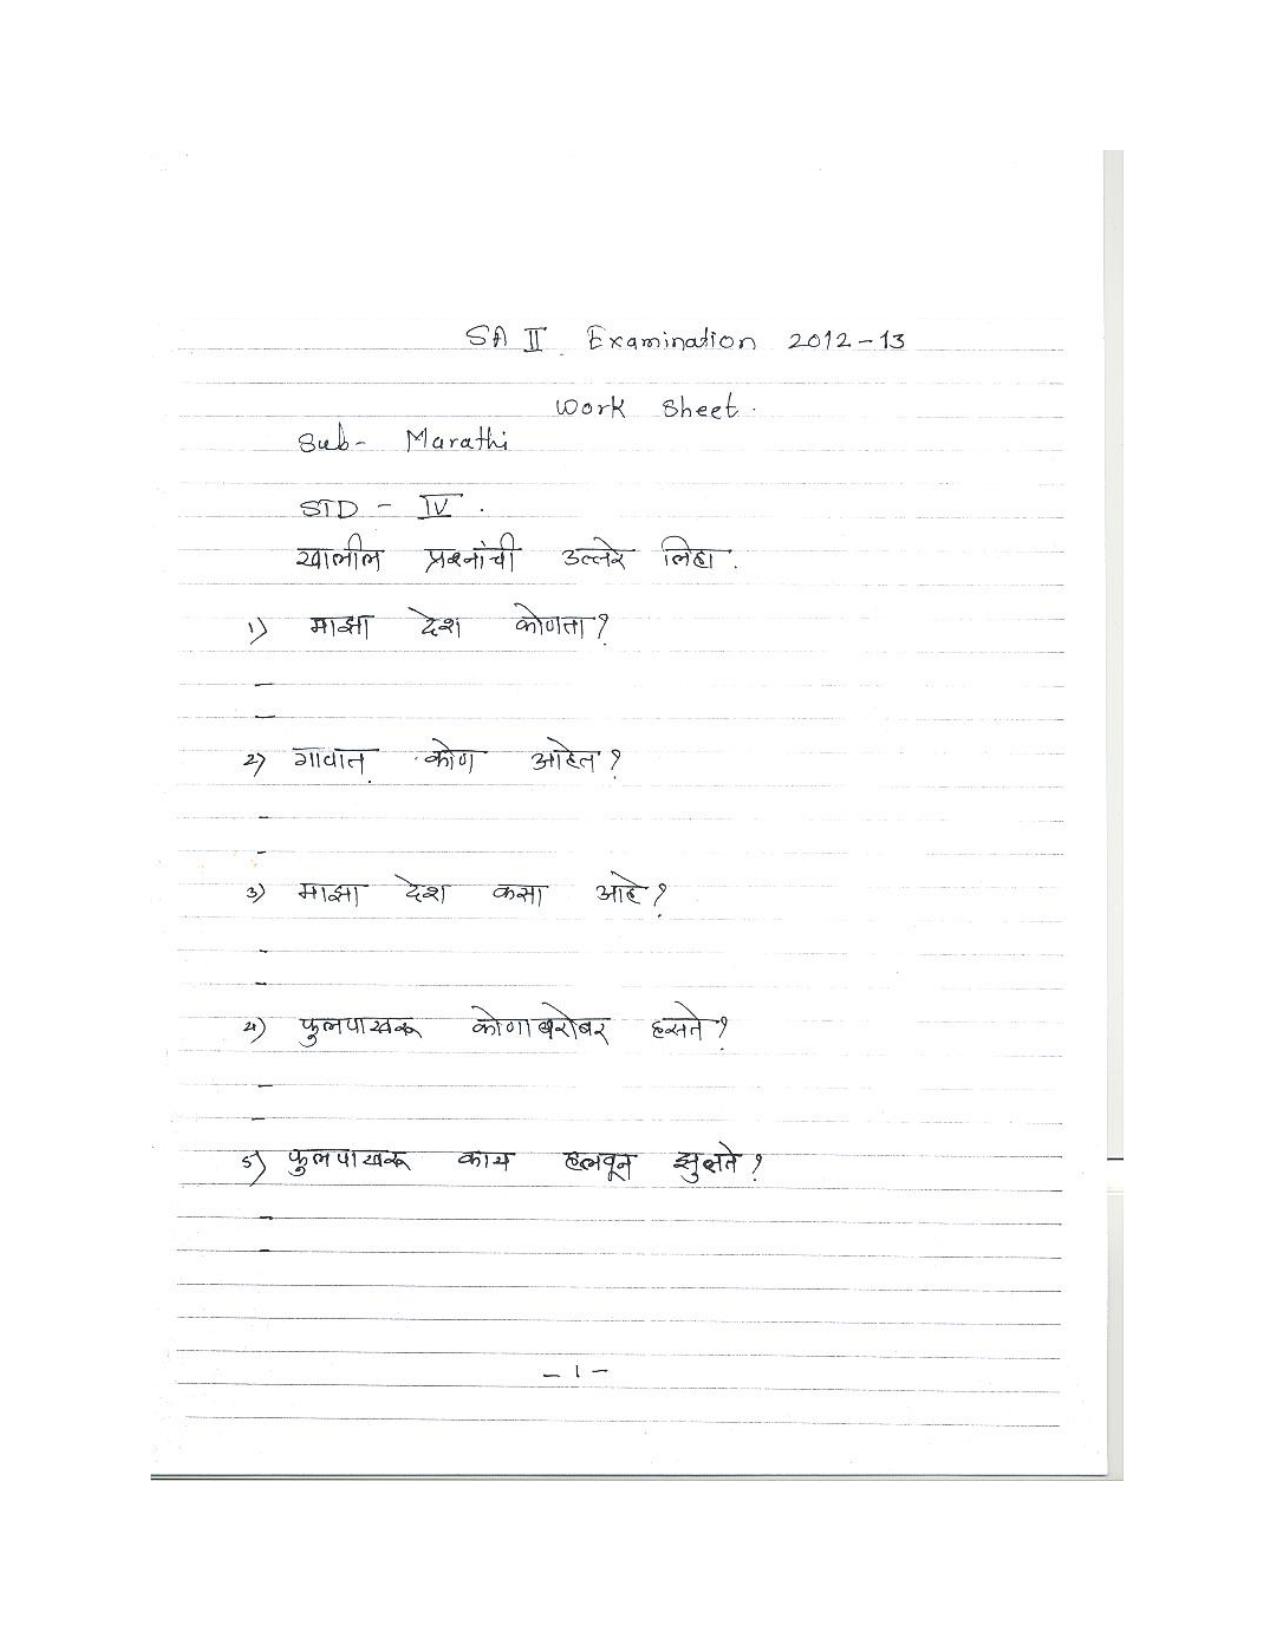 SA II Examination 2012-13
Work Sheet.
Sub- Marathi
STD - IV.
खालील प्रश्नांची उत्तरे लिहा.
1) माझा देश कोणता?
-
-
2) गावात कोण आहेत?
-
-
3) माझा देश कसा आहे?
-
-
4) फुलपाखरू कोणाबरोबर हसते?
-
-
5) फुलपाखरू काय हलवून झुलते?
-
-
- 1 -